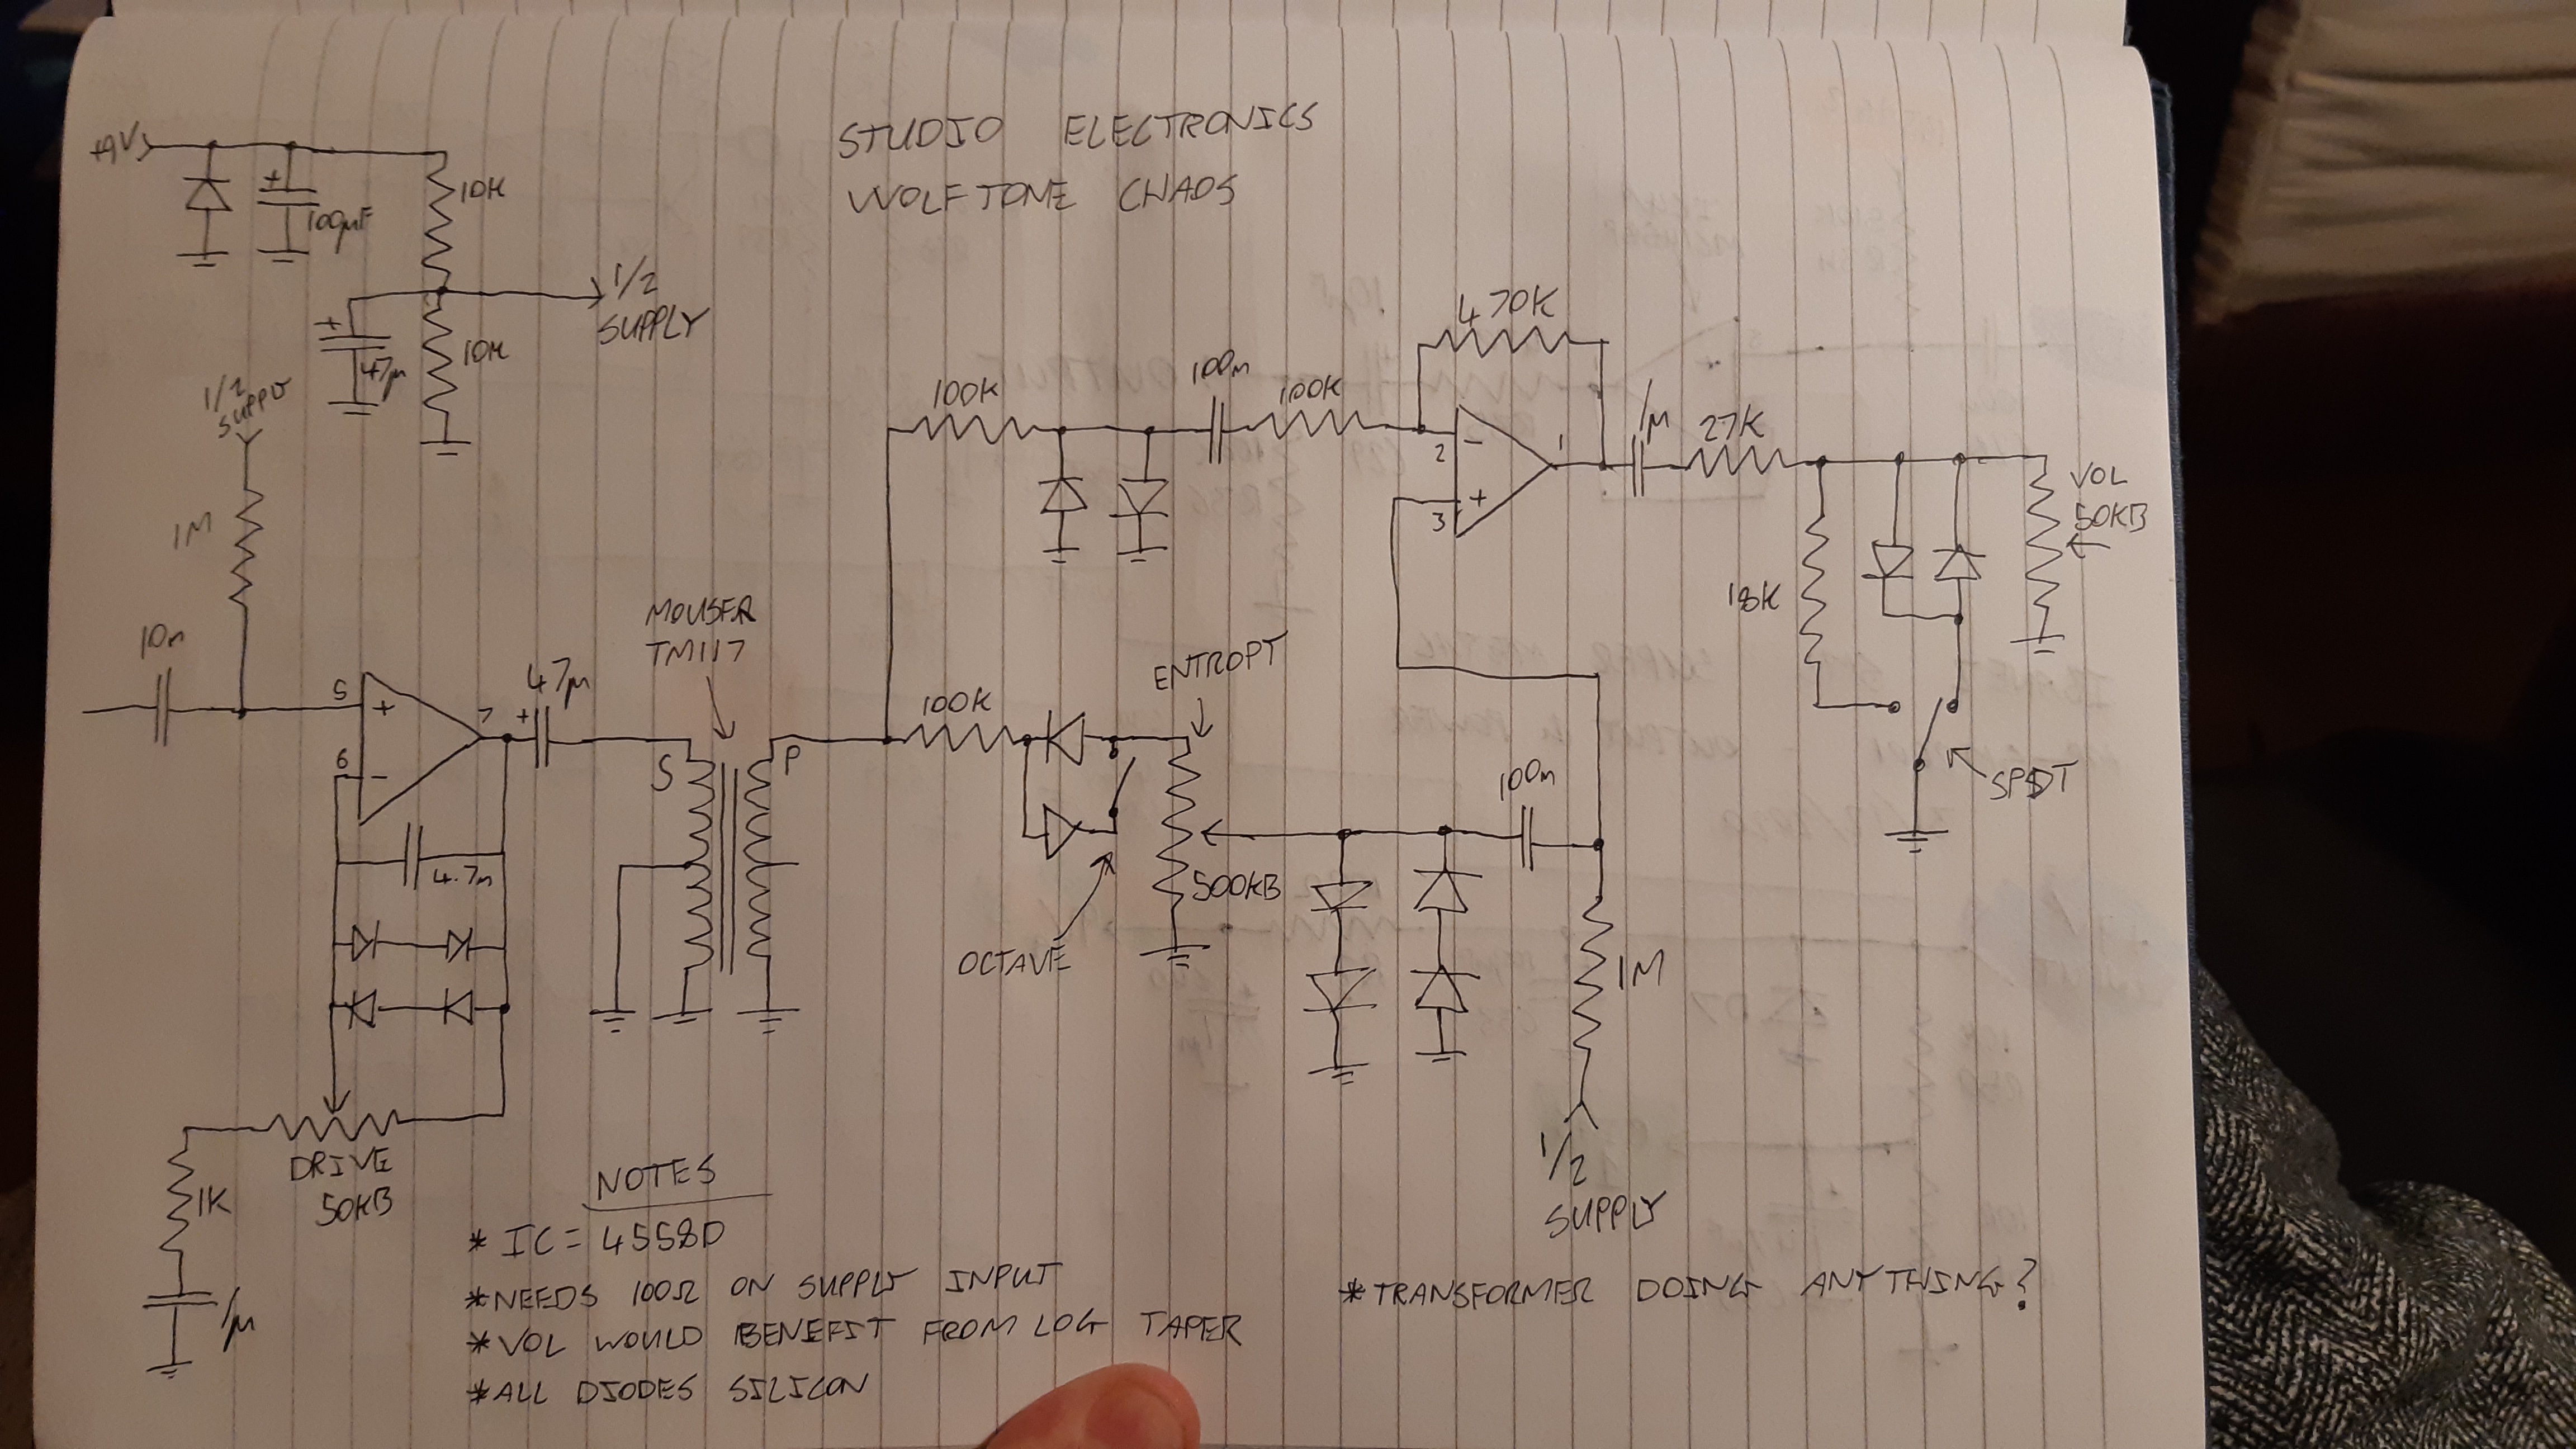 STUDIO ELECTRONICS
WOLFTONE CHAOS
+9V
100µF
10K
1/2
SUPPLY
47µ
10K
1/2
SUPPLY
1M
10n
5
+
6
-
7
+
47µ
4.7n
DRIVE
50KB
1K
1µ
MOUSER
TM117
S
P
100K
100n
100K
470K
2
-
3
+
1
1µ
27K
18K
VOL
50KB
SPDT
100K
ENTROPY
500KB
OCTAVE
100n
1M
1/2
SUPPLY
NOTES
* IC = 4558D
*NEEDS 100Ω ON SUPPLY INPUT
*VOL WOULD BENEFIT FROM LOG TAPER
*ALL DIODES SILICON
*TRANSFORMER DOING ANYTHING?